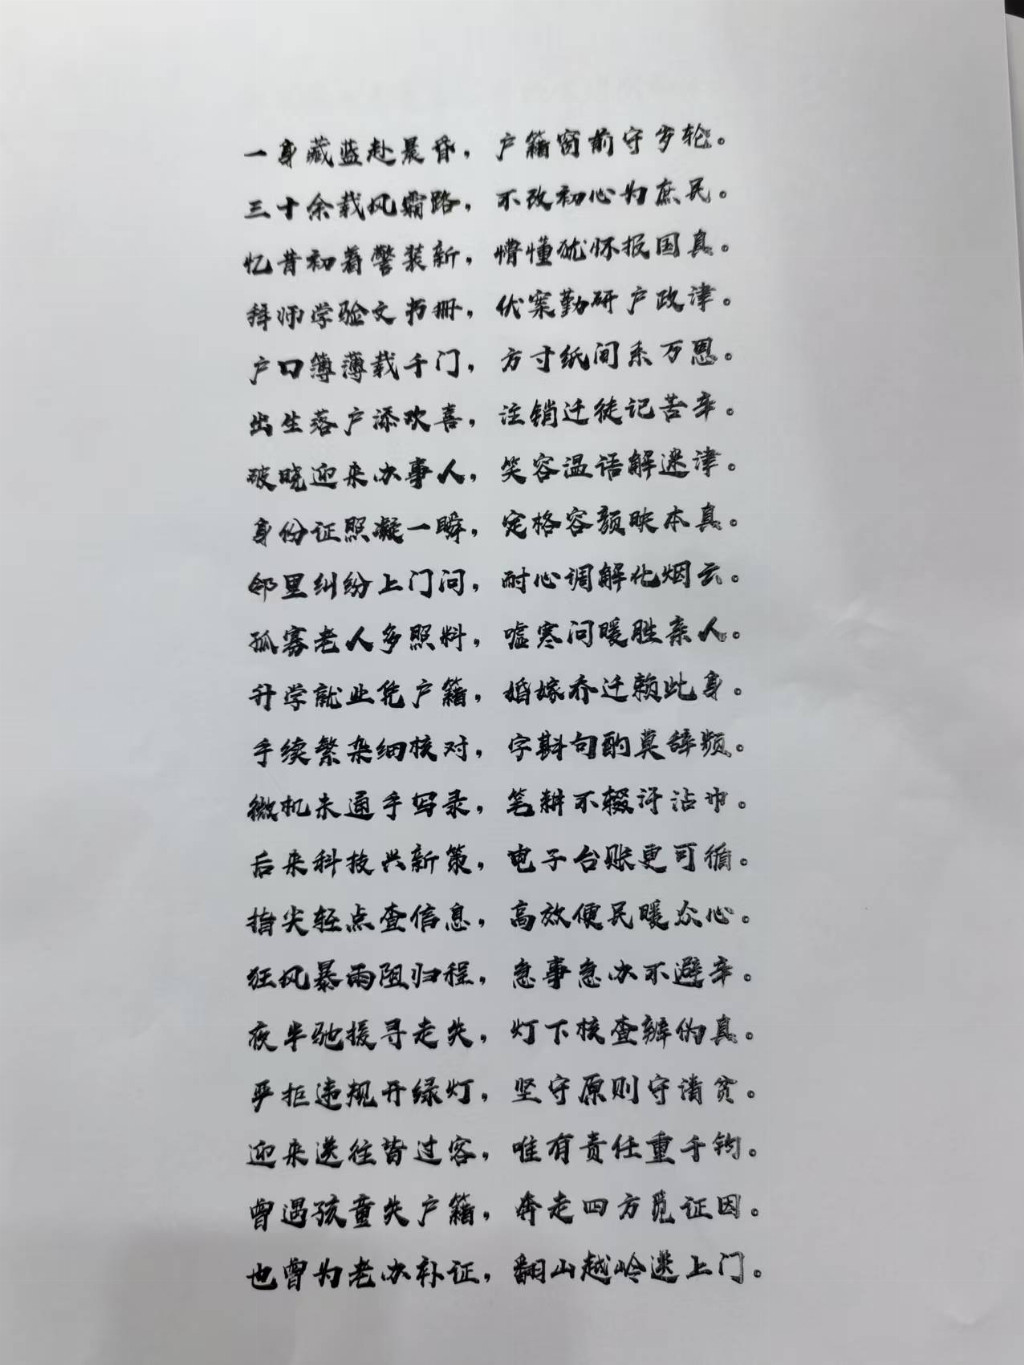 一身藏蓝赴晨昏，户籍窗前守岁轮。
三十余载风霜路，不改初心为庶民。
忆昔初着警装新，懵懂犹怀报国真。
拜师学验文书册，伏案勤研户政津。
户口簿薄载千门，方寸纸间系万恩。
出生落户添欢喜，注销迁徒记苦辛。
破晓迎来办事人，笑容温语解迷津。
身份证照凝一瞬，定格容颜映本真。
邻里纠纷上门问，耐心调解化烟云。
孤寡老人多照料，嘘寒问暖胜亲人。
升学就业凭户籍，婚嫁乔迁赖此身。
手续繁杂细核对，字斟句酌莫辞频。
微机未通手写录，笔耕不辍汗沾巾。
后来科技兴新策，电子台账更可循。
指尖轻点查信息，高效便民暖众心。
狂风暴雨阻归程，急事急办不避辛。
夜半驰援寻走失，灯下核查辨伪真。
严拒违规开绿灯，坚守原则守清贫。
迎来送往皆过客，唯有责任重千钧。
曾遇孩童失户籍，奔走四方觅证因。
也曾为老办补证，翻山越岭送上门。